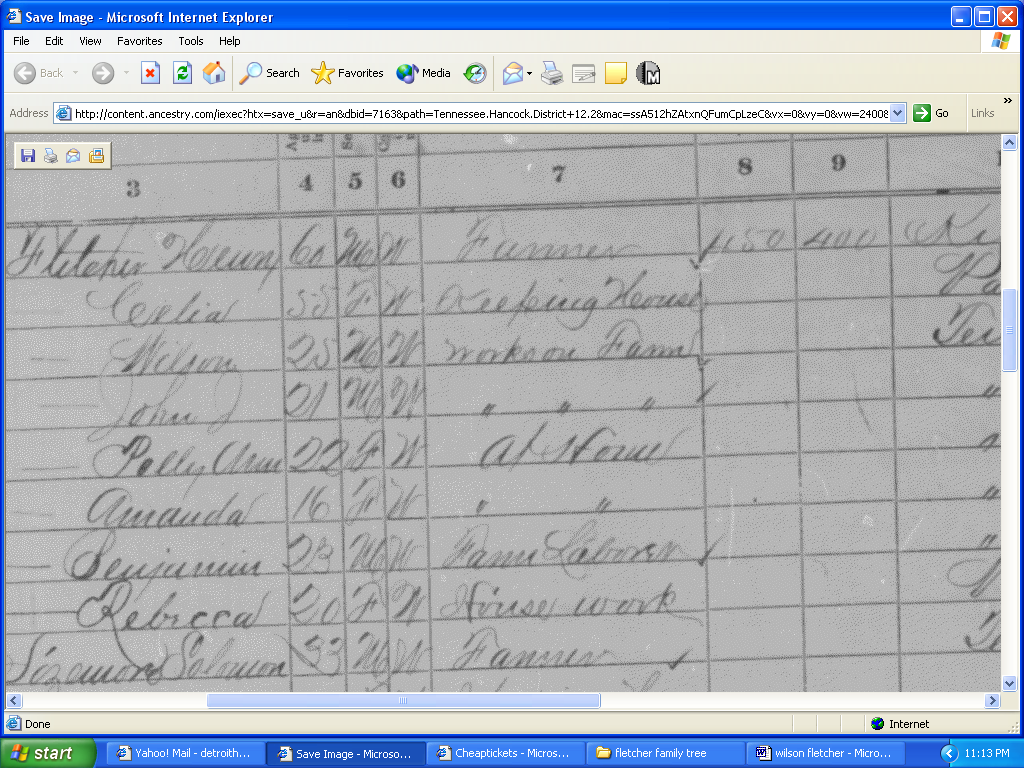 Save Image - Microsoft Internet Explorer
File Edit View Favorites Tools Help
Back Search Favorites Media
Address http://content.ancestry.com/iexec?htx=save_u&r=an&dbid=7163&path=Tennessee.Hancock.District+12.2&mac=ssA512hZAtxnQFumCpLzeC&vx=0&vy=0&vw=24008 Go Links »
3 4 5 6 7 8 9
Fletcher Henry 60 M W Farmer 450 400
Celia 55 F W Keeping House
Wilson 25 M W works on Farm
John 21 M W " " " "
Polly Ann 22 F W At Home
Amanda 16 F W " " "
Benjamin 23 M W Farm Laborer "
Rebecca 20 F W House work
Solomon 33 M W Farmer
Done Internet
start Yahoo! Mail - detroith... Save Image - Microso... Cheaptickets - Micros... fletcher family tree wilson fletcher - Micro... 11:13 PM